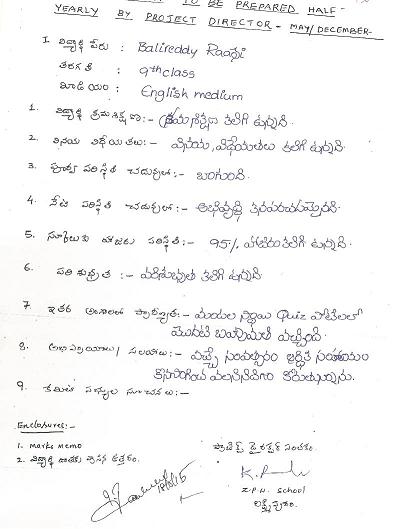 TO BE PREPARED HALF-
YEARLY BY PROJECT DIRECTOR - MAY/DECEMBER-
I. విద్యార్థి పేరు : Balireddy Raaji
తరగతి : 9th class
మీడియం : English medium
1. విద్యార్థి క్రమశిక్షణ :- క్రమశిక్షణ కలిగి ఉన్నది.
2. వినయ విధేయతలు :- వినయ, విధేయతలు కలిగి ఉన్నది.
3. పూర్వ పరిస్థితి చదువులో :- బాగుంది.
4. నేటి పరిస్థితి చదువులో :- అభివృద్ధి కనపరచుచున్నది.
5. స్కూలుకి హాజరు పరిస్థితి :- 95% హాజరు కలిగి ఉన్నది.
6. పరిశుభ్రత :- పరిశుభ్రత కలిగి ఉన్నది.
7. ఇతర అంశాలలో ప్రావీణ్యత :- మండల స్థాయి Quiz పోటీలలో
మొదటి బహుమతి వచ్చింది.
8. అభిప్రాయాలు/ సలహాలు :- వచ్చే సంవత్సరం ఆర్థిక సహాయం
కొనసాగించ వలసినదిగా కోరుతున్నాను.
9. కమిటి సభ్యుల సూచనలు :-
Enclosures:-
1. marks memo
2. విద్యార్థి రాసిన ఉత్తరం.
ప్రాజెక్ట్ డైరక్టర్ సంతకం.
Z.P.H. School